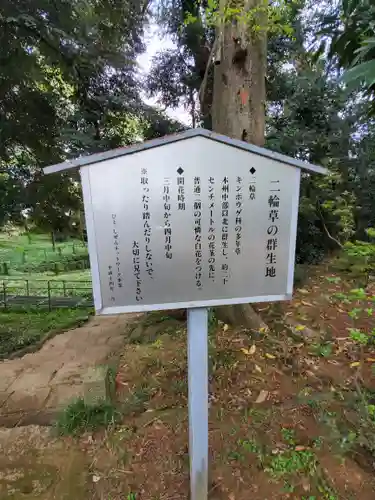 二輪草の群生地
◆二輪草
キンポウゲ科の多年草
本州中部以北に群生し、約二十
センチメートルの花茎の先に、
普通二個の可憐な白花をつける。
◆開花時期
三月中旬から四月中旬
※取ったり踏んだりしないで
大切に見て下さい